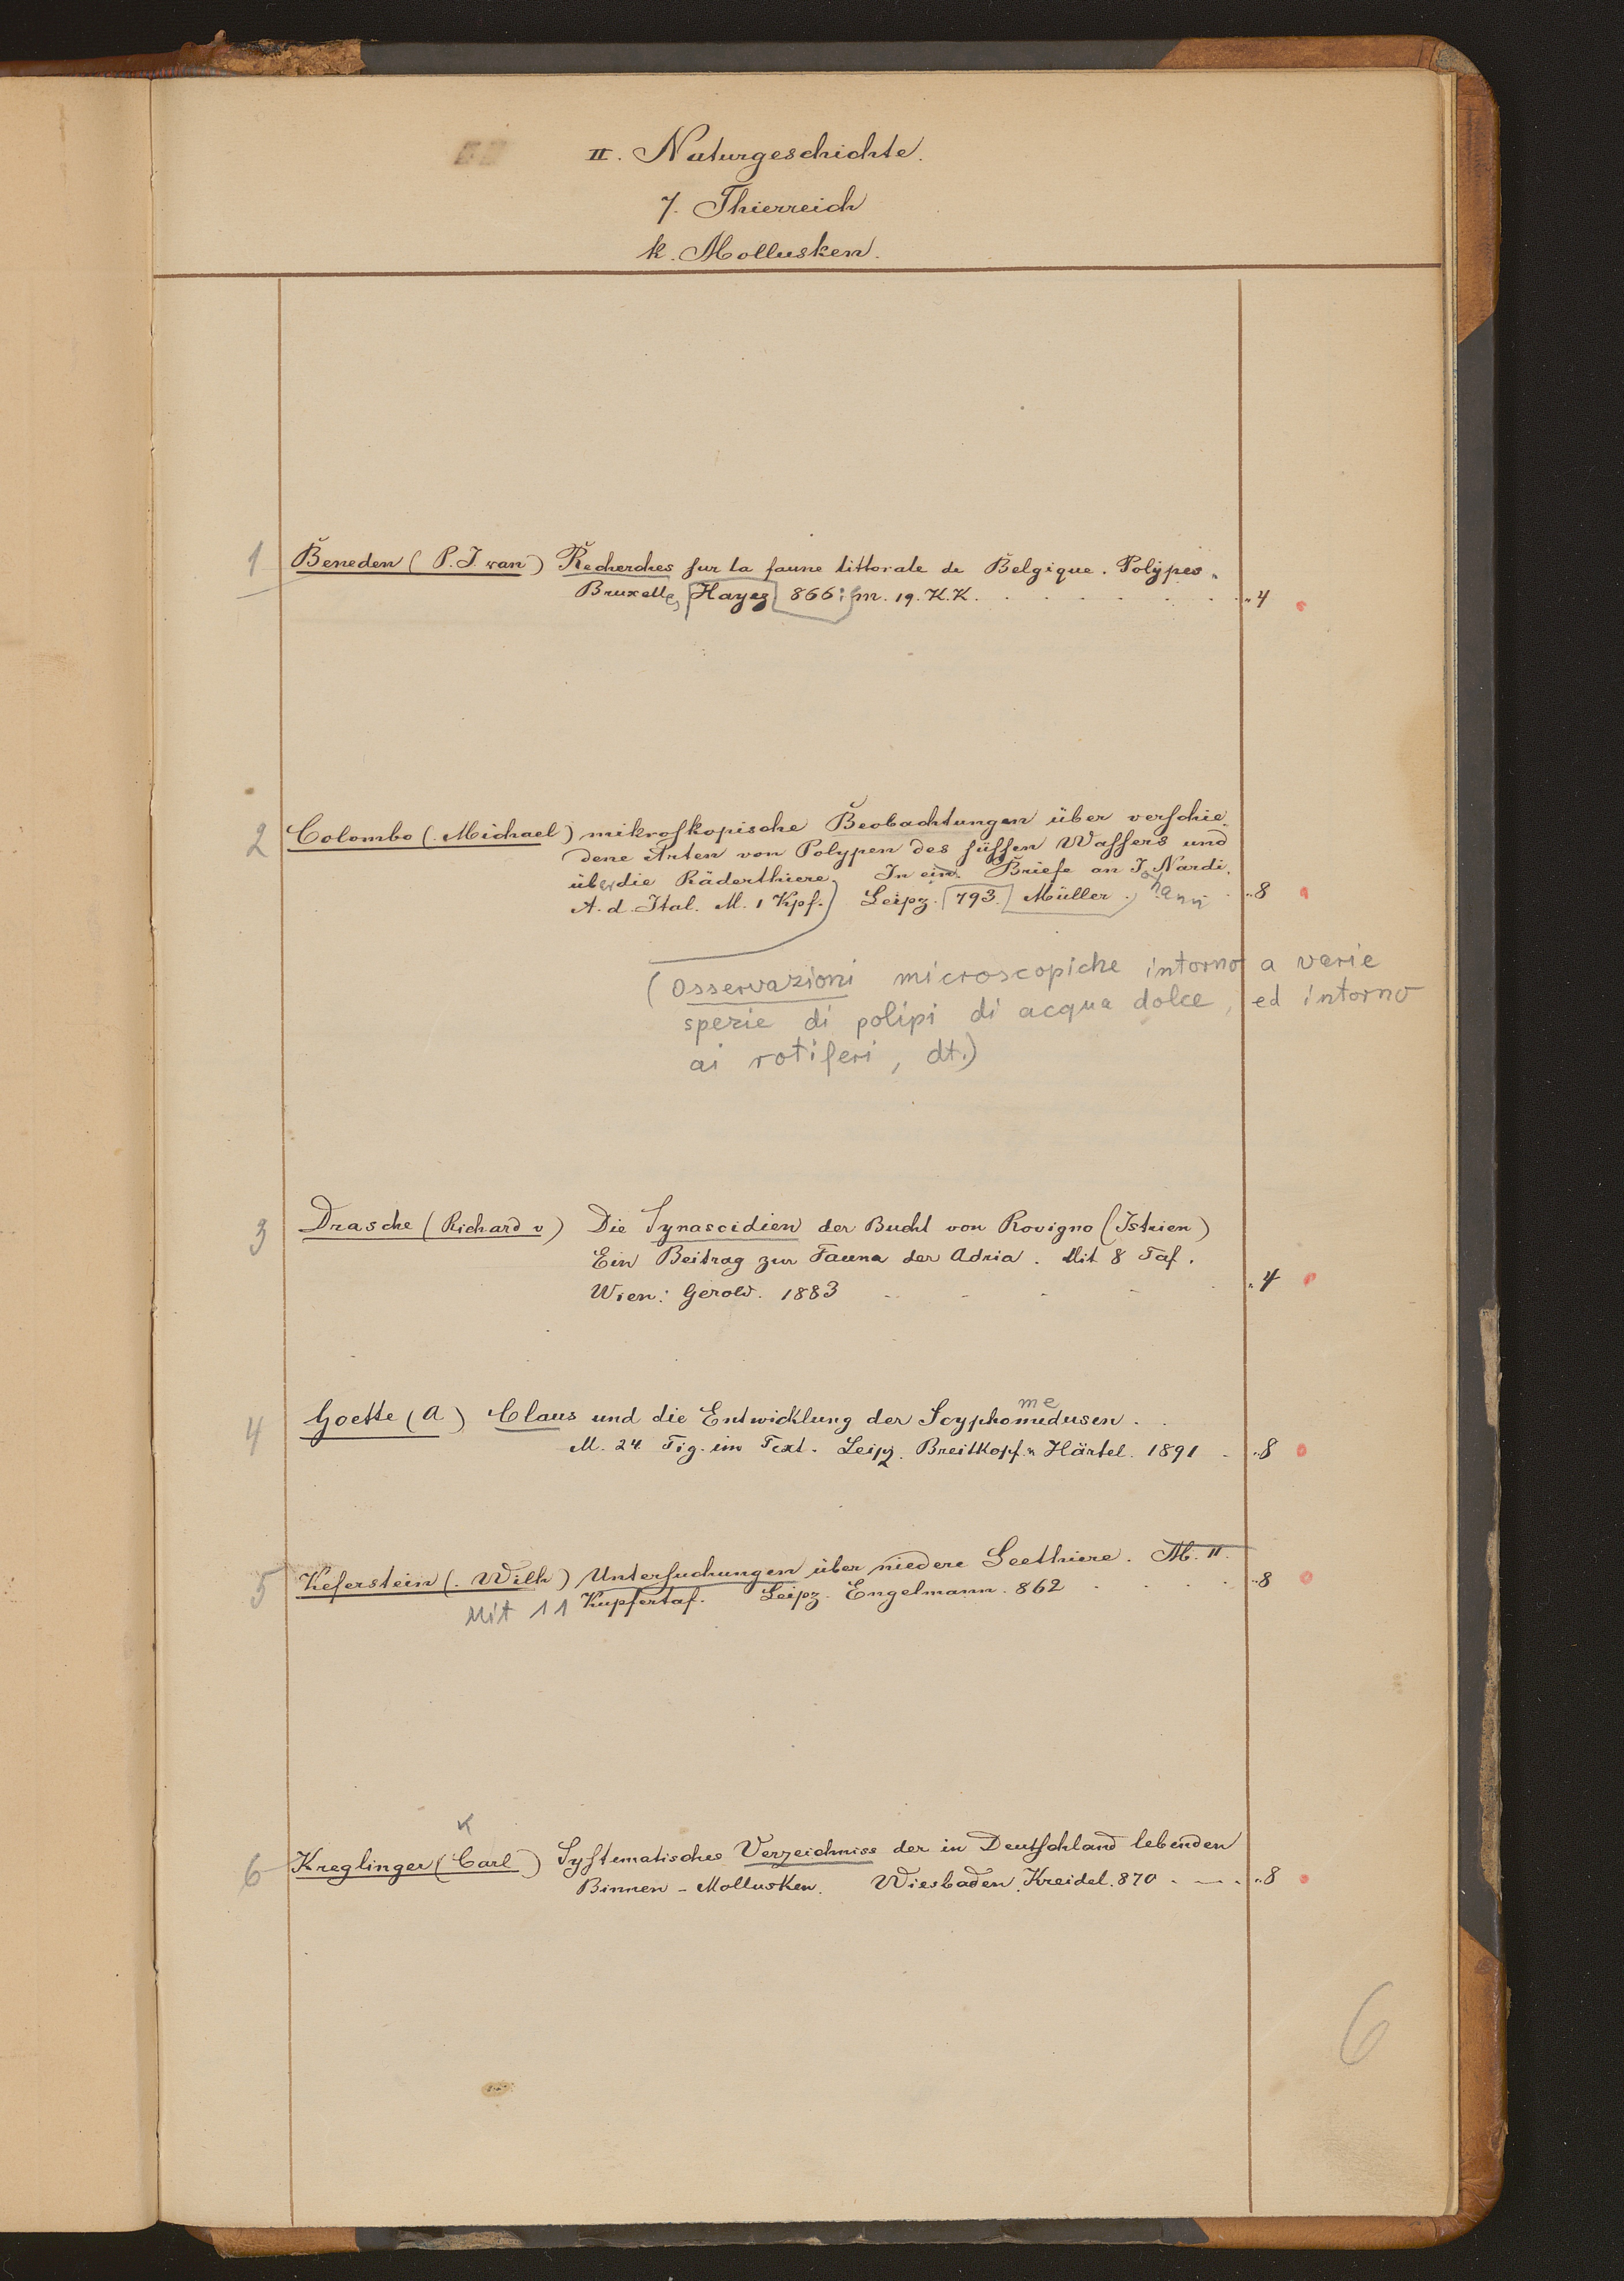 II. Naturgeschichte.
7. Thierreich
k. Mollusken.
1 Beneden (P. J. van) Recherches sur la faune littorale de Belgique. Polypes.
Bruxelles, Hayez 866: m. 19. K.K. . . . . . . . „ 4
2 Colombo (Michael) mikroskopische Beobachtungen über verschie-
dene Arten von Polypen des süssen Wassers und
über die Räderthiere. In ein. Briefe an Johann Nardi.
A. d. Ital. M. 1 Kpf.) Leipz. 793. Müller. „ 8
(Osservazioni microscopiche intorno a varie
spezie di polipi di acqua dolce, ed intorno
ai rotiferi, dt.)
3 Drasche (Richard v) Die Synascidien der Bucht von Rovigno (Istrien)
Ein Beitrag zur Fauna der Adria. Mit 8 Taf.
Wien: Gerold. 1883 „ 4
me
4 Goette (A) Claus und die Entwicklung der Scyphomedusen.
M. 24 Fig. im Text. Leipz. Breitkopf u Härtel. 1891 „ 8
5 Keferstein (Wilh) Untersuchungen über niedere Seethiere. M. 11.
Mit 11 Kupfertaf. Leipz. Engelmann. 862 . . . . . „ 8
K
6 Kreglinger (Carl) Systematisches Verzeichniss der in Deutschland lebenden
Binnen-Mollusken. Wiesbaden. Kreidel. 870 „ 8
6